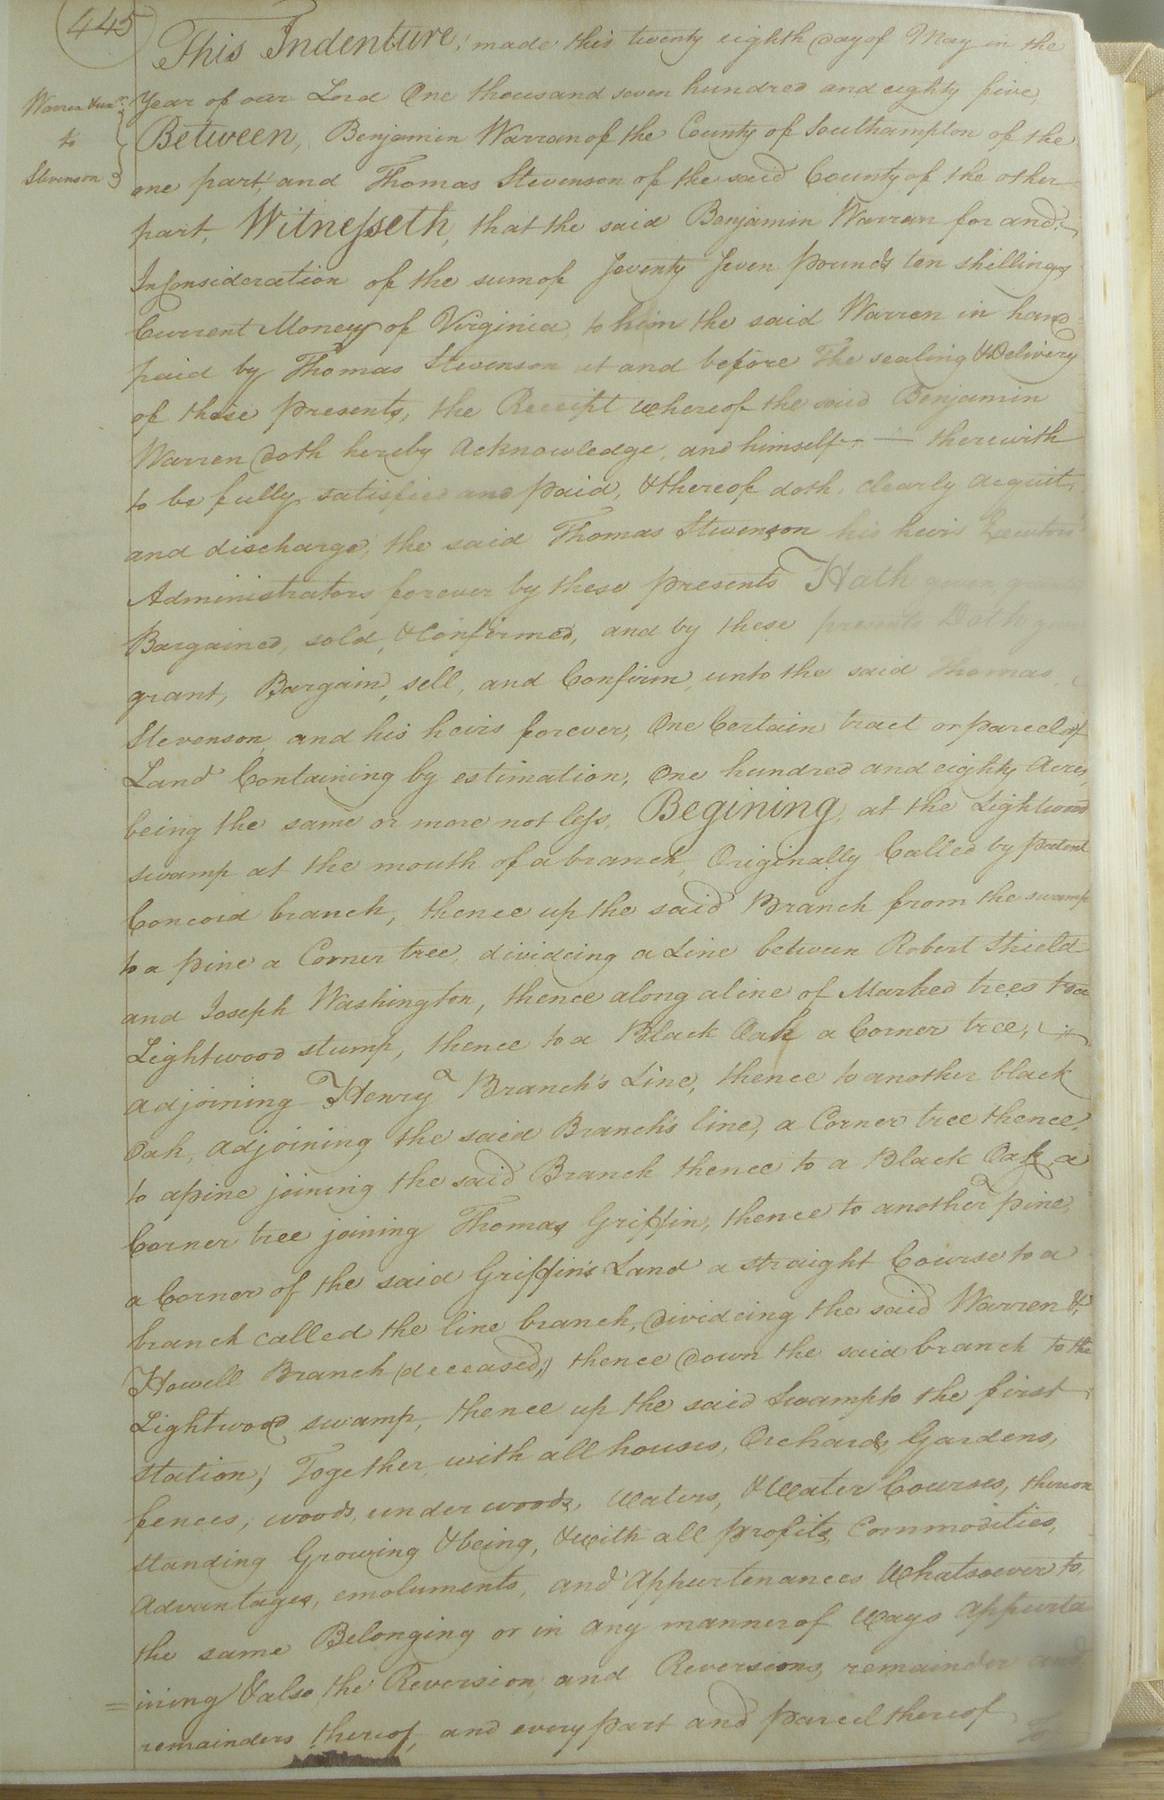 445
This Indenture, made this twenty eighth day of May in the
Warren &ux.r
to
Stevenson
Year of our Lord One thousand seven hundred and eighty five,
Between, Benjamin Warran of the County of Southampton of the
one part, and Thomas Stevenson of the said County of the other
part, Witnesseth, that the said Benjamin Warran for and
In Consideration of the sum of Seventy Seven pounds ten shillings
Current Money of Virginia, to him the said Warren in hand
paid by Thomas Stevenson at and before the sealing & Delivery
of these presents, the Receipt whereof the said Benjamin
Warren doth hereby acknowledge, and himself - — therewith
to be fully satisfied and paid, & thereof doth clearly acquit,
and discharge, the said Thomas Stevenson his heirs Executors
Administrators forever by these presents Hath
Bargained, sold, & Confirmed, and by these presents Doth
grant, Bargain, sell, and Confirm, unto the said Thomas
Stevenson, and his heirs forever, One Certain tract or parcel of
Land Containing by estimation, one hundred and eighty Acres,
being the same or more not less, Begining, at the Lightwood
swamp at the mouth of a branch, Originally Called by patent
Concord branch, thence up the said Branch from the swamp
to a pine a Corner tree, divideing a Line between Robert Shield
and Joseph Washington, thence along a line of Marked trees to a
Lightwood stump, thence to a Black Oak a Corner tree,
adjoining Henry Branch's Line, thence to another black
Oak, adjoining the said Branch's line, a Corner tree thence
to a pine joining the said Branch thence to a Black Oak, a
Corner tree joining Thomas Griffin, thence to another pine,
a Corner of the said Griffin's Land a straight Course to a
branch called the line branch, divideing the said Warren &
Howell Branch (deceased,) thence down the said branch to the
Lightwood swamp, thence up the said Swamp to the first
station; Together with all houses, Orchards, Gardens,
fences, woods, under woods, waters, & Water Courses, thereon
standing Growing & being, & with all profits, Commodities,
Advantages, emoluments, and Appurtenances whatsoever to
the same Belonging or in any manner of ways appurta
=ining & also the Reversion, and Reversions, remainder and
remainders thereof, and every part and parcel thereof